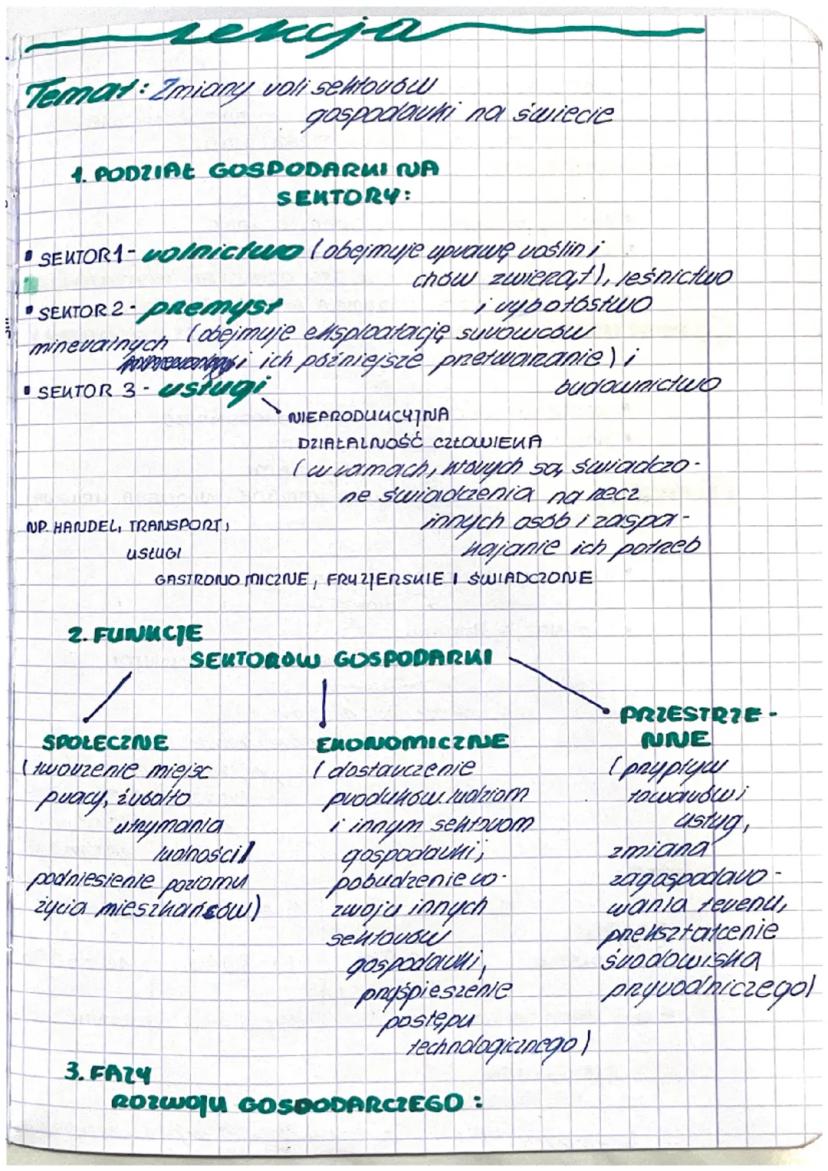 Lekcja
Temat: Zmiany roli sektorów
gospodarki na świecie
1. PODZIAŁ GOSPODARKI NA
SEKTORY:
SEKTOR 1 - rolnictwo (obejmuje uprawę roślin i
chów zwierząt), leśnictwo
i rybołóstwo
SEKTOR 2 - przemysł
(obejmuje eksploatację surowców
mineralnych
i ich późniejsze przetwarzanie) i
budownictwo
SEKTOR 3 - usługi
NIEPRODUKCYJNA
DZIAŁALNOŚĆ CZŁOWIEKA
(w ramach, których są, świadczo-
ne świadczenia na rzecz
innych osób i zaspa-
kajanie ich potrzeb
NP. HANDEL, TRANSPORT,
USŁUGI
GASTRONOMICZNE, FRYZJERSKIE I ŚWIADCZONE
2. FUNKCJE
SEKTORÓW GOSPODARKI
SPOŁECZNE
(tworzenie miejsc
pracy, źródło
utrzymania
ludności,
podniesienie poziomu
życia mieszkańców)
EKONOMICZNE
(dostarczenie
produktów ludziom
i innym sektorom
gospodarki,
pobudzenie ro-
zwoju innych
sektorów
gospodarki,
przyśpieszenie
postępu
technologicznego)
PRZESTRZE-
NNE
(przypływ
towarów i
usług,
zmiana
zagospodaro-
wania terenu,
przekształcenie
środowiska
przyrodniczego)
3. FAZY
ROZWOJU GOSPODARCZEGO: